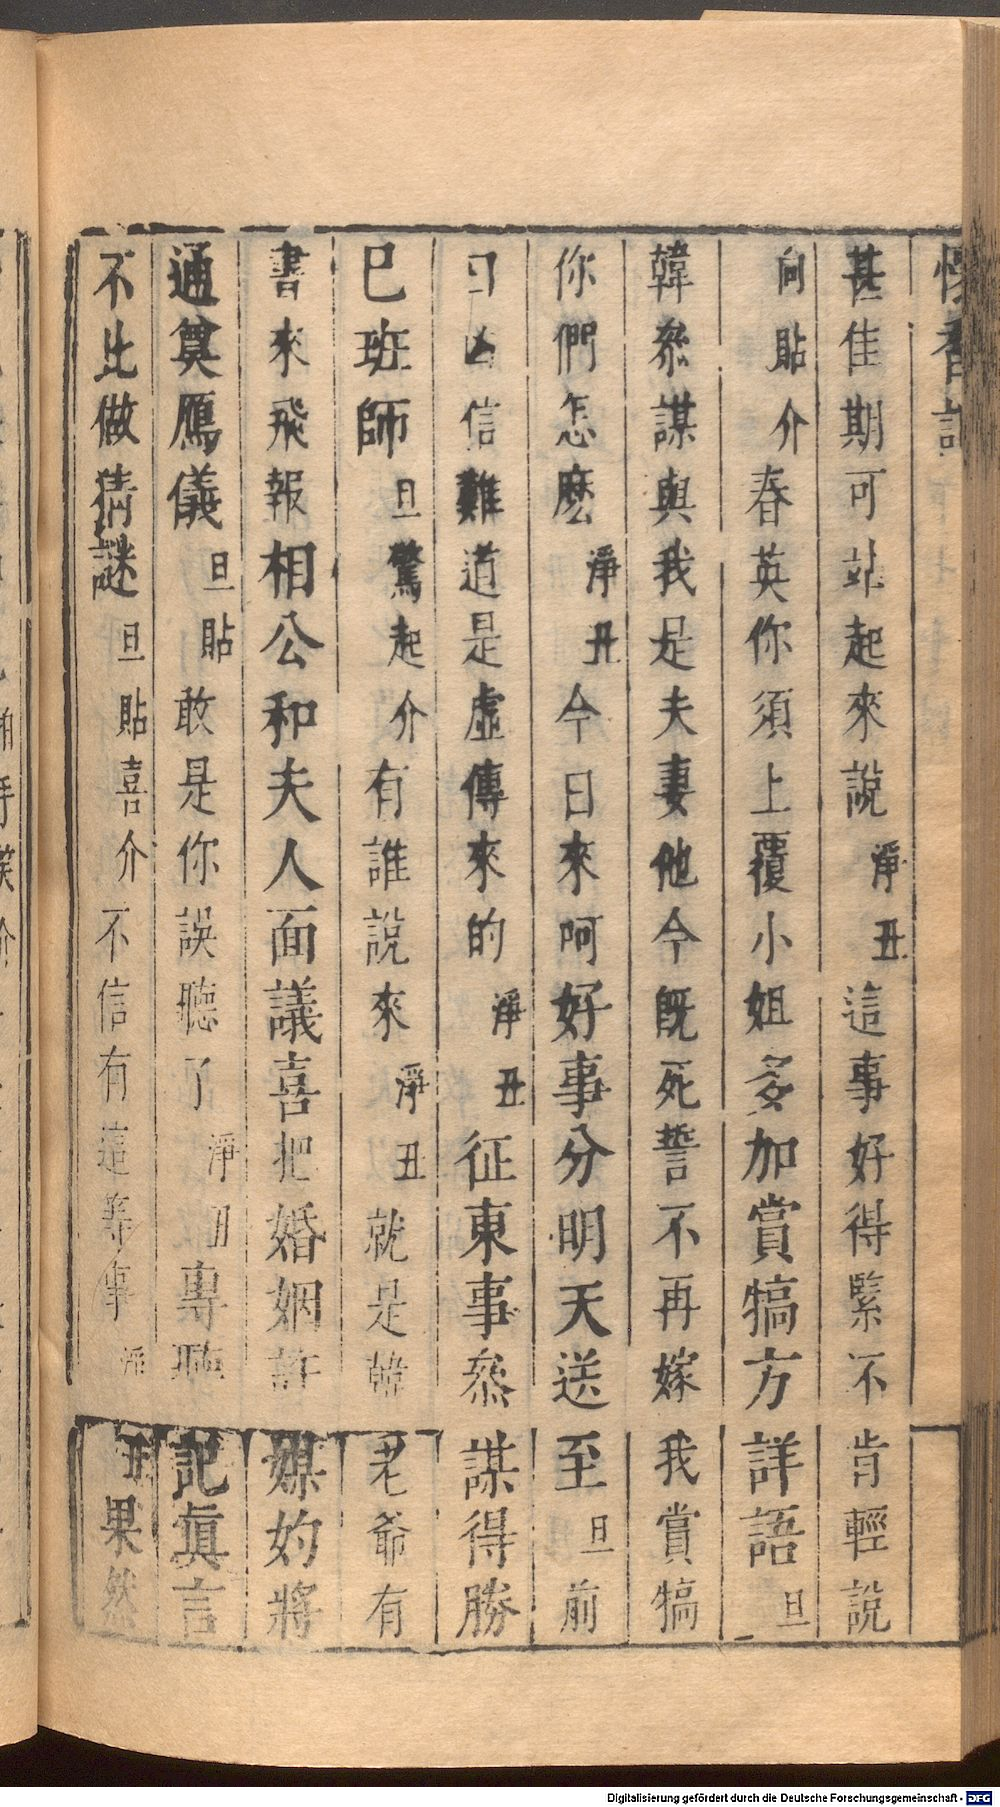 懷香記
甚佳期可站起來說淨丑這事好得緊不肯輕說
向貼介春英你須上覆小姐多加賞犒方詳語旦
韓叅謀與我是夫妻他今既死誓不再嫁我賞犒
你們怎麽淨丑今日來呵好事分明天送至旦前
日凶信難道是虛傳來的淨丑征東事叅謀得勝
已班師旦驚起介有誰說來淨丑就是韓老爺有
書來飛報相公和夫人面議喜把婚姻許媒妁將
通奠鴈儀旦貼敢是你誤聽了淨丑專聽記眞言
不比做猜謎旦貼喜介不信有這等事淨丑果然
Digitalisierung gefördert durch die Deutsche Forschungsgemeinschaft - DFG